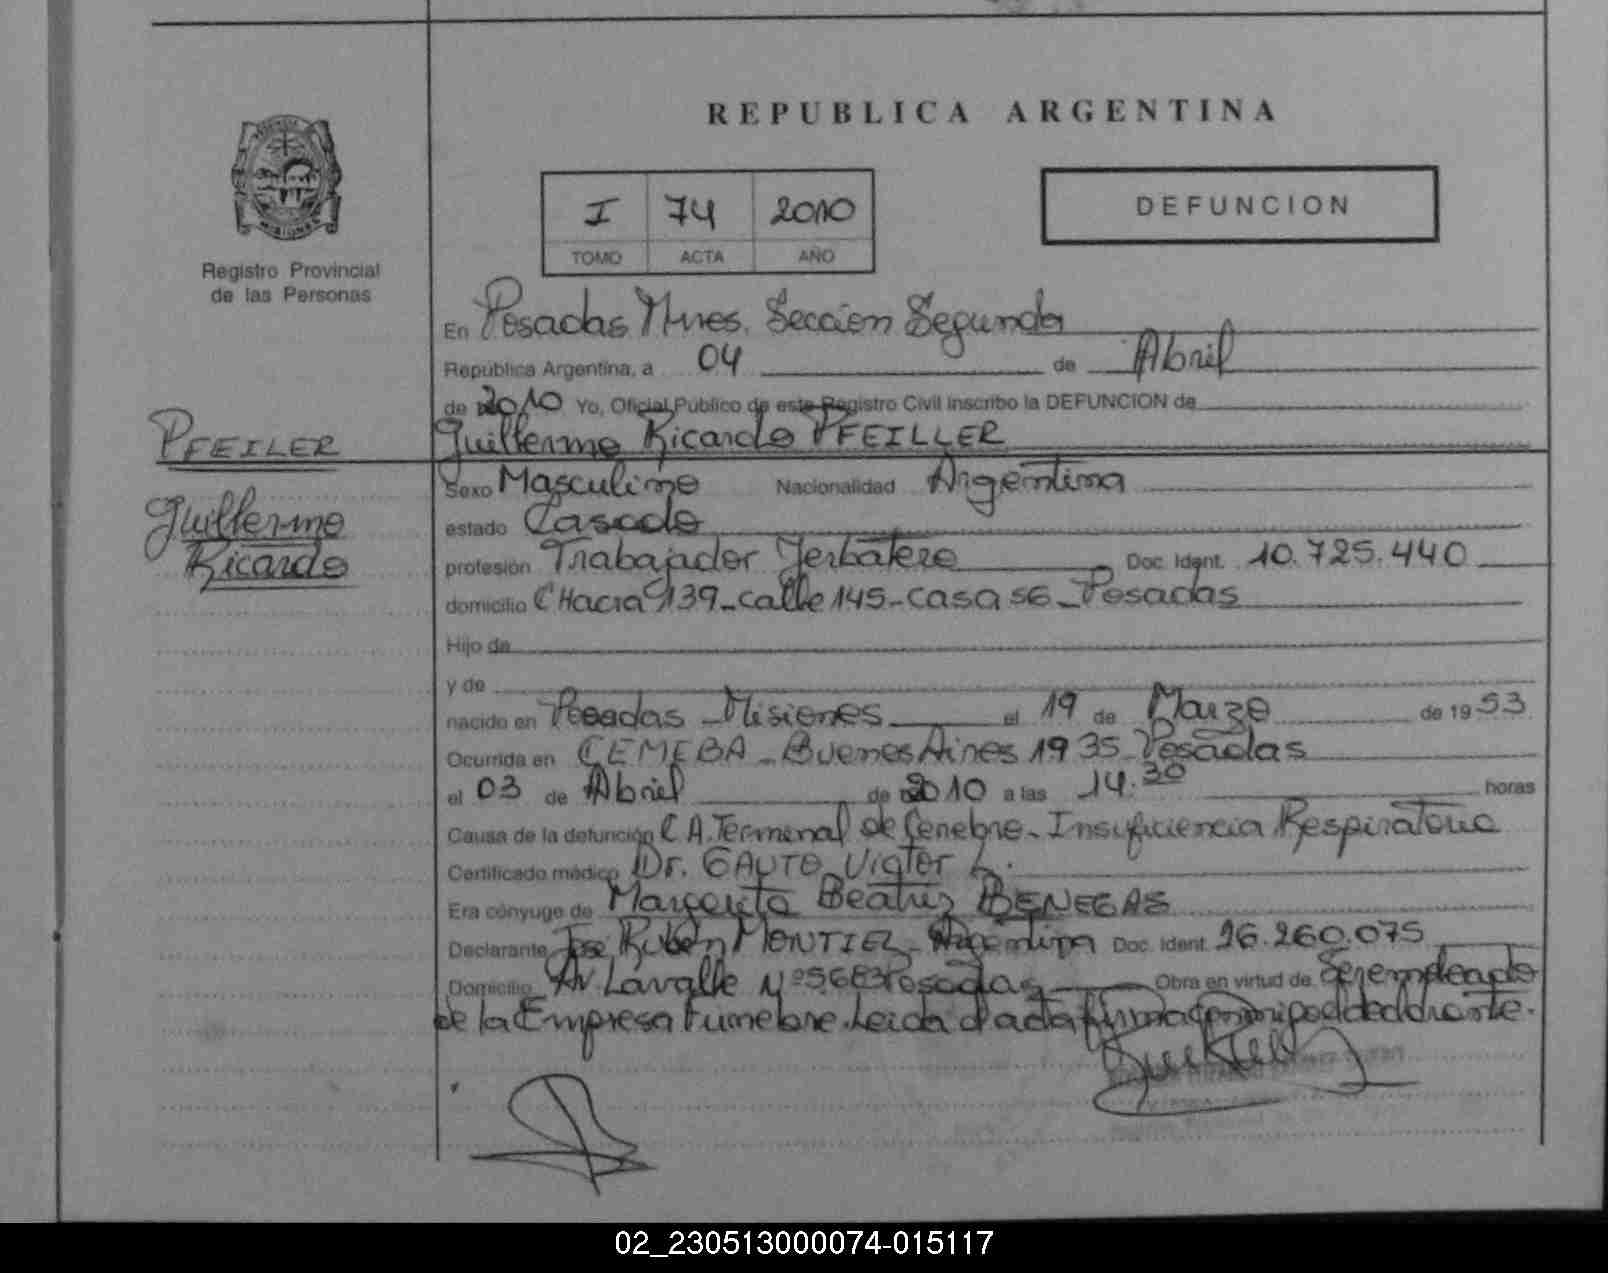 REPUBLICA ARGENTINA
I 74 2010
TOMO ACTA AÑO
DEFUNCION
Registro Provincial
de las Personas
En Posadas Mnes. Sección Segunda
República Argentina, a 04 de Abril
de 2010 Yo, Oficial Público de este Registro Civil inscribo la DEFUNCION de
PFEILER
Guillermo Ricardo PFEILLER
Guillermo
Ricardo
Sexo Masculino Nacionalidad Argentina
estado Casado
profesión Trabajador Yerbatero Doc. Ident. 10.725.440
domicilio CHacra 139-calle 145-casa 56-Posadas
Hijo de
y de
nacido en Posadas - Misiones el 19 de Marzo de 1953
Ocurrida en CEMEBA - Buenos Aires 1935 - Posadas
el 03 de Abril de 2010 a las 14:30 horas
Causa de la defunción C.A. Terminal de Cerebro - Insuficiencia Respiratoria
Certificado médico Dr. GAUTO Victor L.
Era cónyuge de Margarita Beatriz BENEGAS
Declarante Jose Ruben MONTIEL - Argentina Doc. Ident. 26.260.075
Domicilio Av. Lavalle Nº 5683 Posadas Obra en virtud de Ser empleado
de la Empresa Funebre. Leida el acta firma el declarante.
02_230513000074-015117